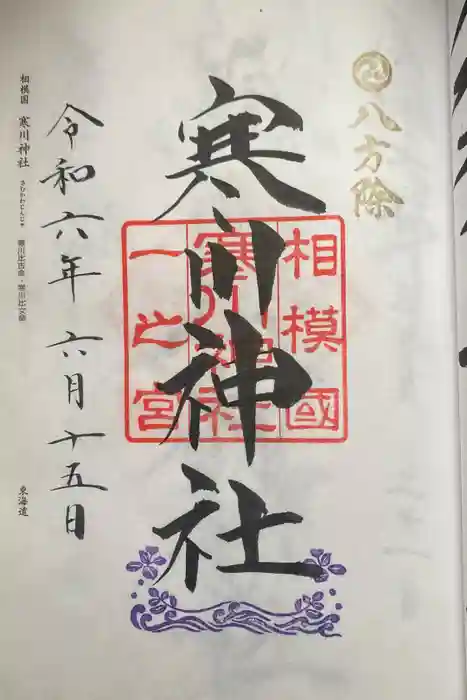 八方除
寒川神社
相模國
寒川神社
一之宮
令和六年 六月十五日
相模国 寒川神社 さむかわじんじゃ 寒川比古命・寒川比女命
東海道